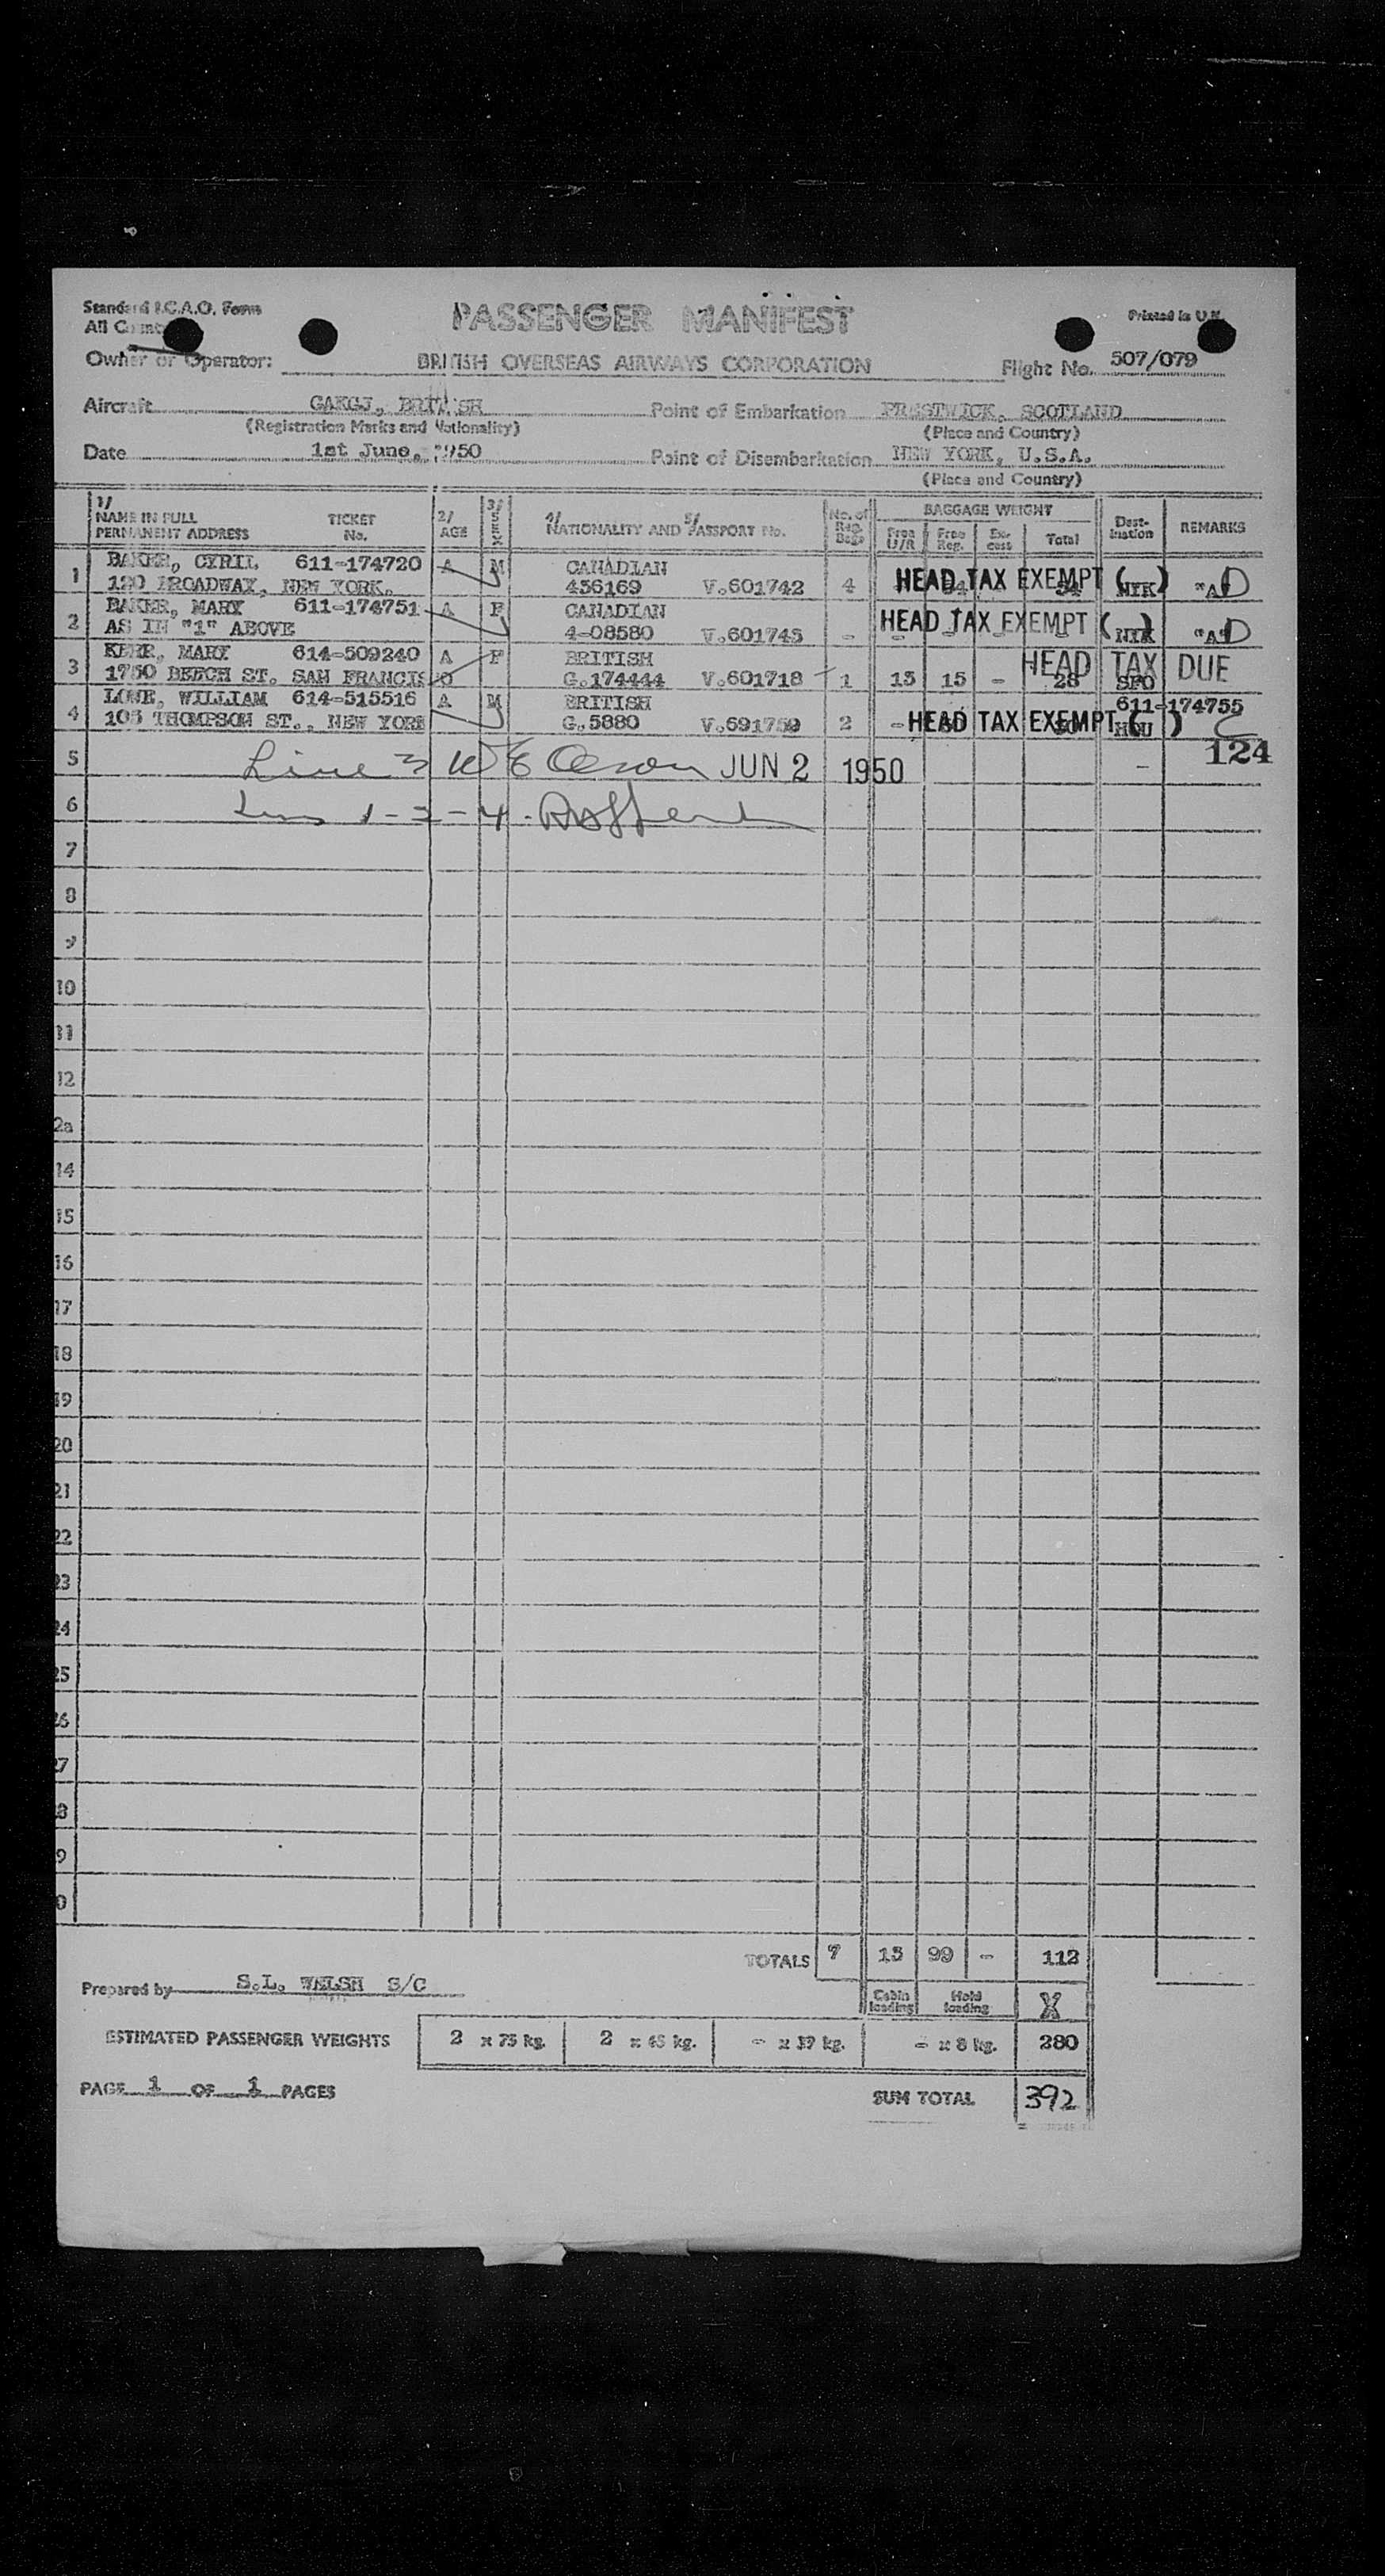 Standard I.C.A.O. Form
PASSENGER MANIFEST
Printed in U.K.
All
Owner or Operator: BRITISH OVERSEAS AIRWAYS CORPORATION Flight No. 507/079
Aircraft GAKGJ, BRITISH Point of Embarkation PRESTWICK, SCOTLAND
(Registration Marks and Nationality) (Place and Country)
Date 1st June, 1950 Point of Disembarkation NEW YORK, U.S.A.
(Place and Country)
1/ NAME IN FULL PERMANENT ADDRESS TICKET No. 2/ AGE 3/ SEX 4/ NATIONALITY AND 5/ PASSPORT No. No. of Reg. Bags BAGGAGE WEIGHT Free U/R Free Reg. Ex-cess Total Dest-ination REMARKS
1 BAKER, CYRIL 611-174720 A M CANADIAN
120 BROADWAY, NEW YORK. 436169 V.601742 4 HEAD TAX EXEMPT ( ) NYK "A" D
2 BAKER, MARY 611-174751 A F CANADIAN
AS IN "1" ABOVE 4-08580 V.601743 - HEAD TAX EXEMPT ( ) NYK "A" D
3 KERR, MARY 614-509240 A F BRITISH HEAD TAX DUE
1750 BEECH ST. SAN FRANCISCO G.174444 V.601718 1 13 15 - 28 SFO
4 LOWE, WILLIAM 614-515516 A M BRITISH 611-174755
105 THOMPSON ST., NEW YORK G.5880 V.691759 2 - HEAD TAX EXEMPT ( ) HOU C
124
5 Line 3 W E Olson JUN 2 1950 -
6 Lines 1-2-4.
7
8
9
10
11
12
2a
14
15
16
17
18
19
20
21
22
23
24
25
26
27
8
9
0
TOTALS 7 13 99 - 112
Prepared by S.L. WALSH S/C
Cabin loading Hold loading X
ESTIMATED PASSENGER WEIGHTS 2 x 75 kg. 2 x 65 kg. - x 39 kg. - x 8 kg. 280
PAGE 1 OF 1 PAGES
SUM TOTAL 392